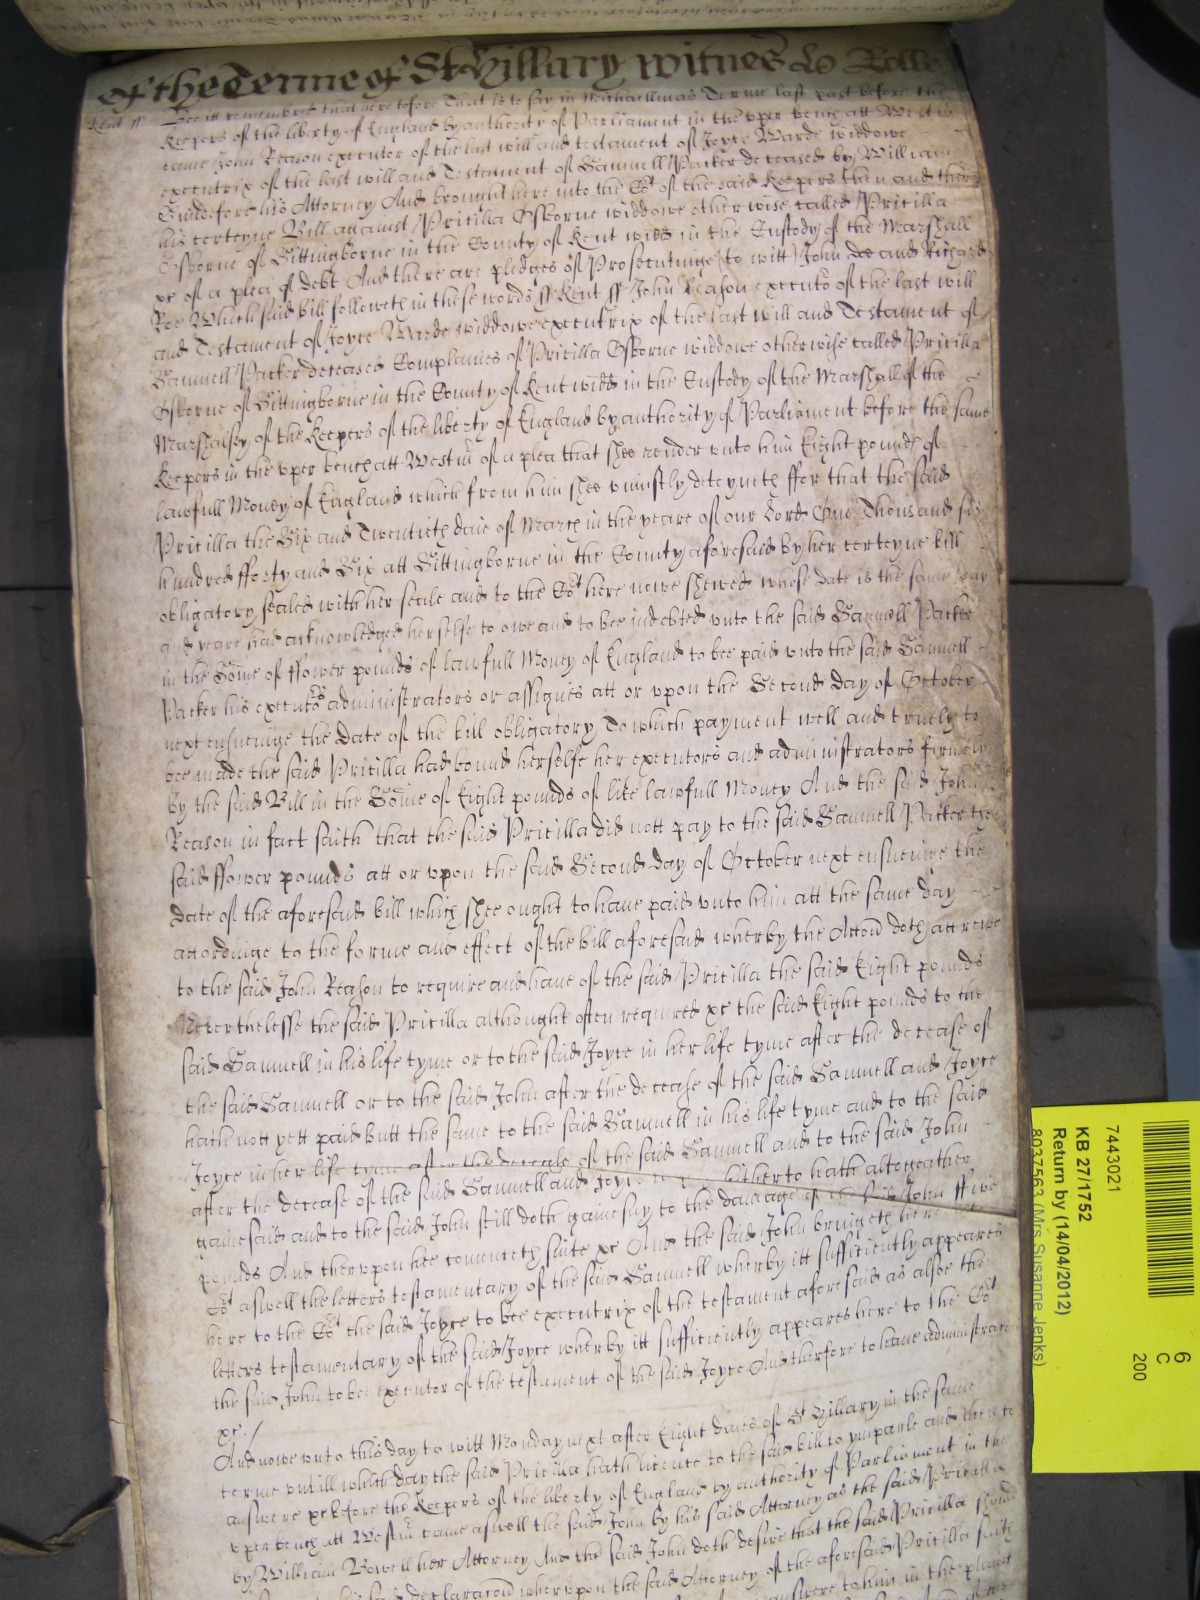 of the Terme of St Hillary witnes Lo Rolle
Kent ss Bee itt remembred that heretofore That is to say in Michaellmas Terme last past before the
Keepers of the liberty of England by authority of Parliament in the vper bench att Westm̄
came John Reason executor of the last will and testament of Joyce Warde widdowe
executrix of the last will and Testament of Samuell Packer deceased by William
Guildeford his Attorney And brought here into the Cot of the said Keepers then and there
his certeyne Bill against Pricilla Osborne widdowe otherwise called Pricilla
Osborne of Sittingborne in the County of Kent widd in the Custody of the Marshall
xc of a plea of debt And there are pledges of Prosecutinge (to witt) John Doe and Richard
Roe Which said bill followeth in these words ss Kent ss John Reason executor of the last will
and Testament of Joyce Warde widdowe executrix of the last will and Testament of
Samuell Packer deceased Complaines of Pricilla Osborne widdowe otherwise called Pricilla
Osborne of Sittingborne in the County of Kent widd in the Custody of the Marshall of the
Marshalsey of the Keepers of the liberty of England by authority of Parliament before the same
Keepers in the vper bench att Westm̄ of a plea that shee render vnto him Eight pounds of
lawfull Money of England which from him shee vniustly deteyneth ffor that the said
Pricilla the Six and Twentieth daie of March in the yeare of our Lord One Thousand six
hundred fforty and Six att Sittingborne in the County aforesaid by her certeyne bill
obligatory sealed with her seale and to the Cot here nowe shewed whose date is the same day
and yeare had acknowledged herselfe to owe and to bee indebted vnto the said Samuell Packer
in the Some of ffower pounds of lawfull Money of England to bee paid vnto the said Samuell
Packer his executors administrators or assignes att or vpon the Second day of October
next ensueinge the date of the bill obligatory To which payment well and truely to
bee made the said Pricilla had bound herselfe her executors and administrators firmely
by the said Bill in the Some of Eight pounds of like lawfull Money And the said John
Reason in fact saith that the said Pricilla did nott pay to the said Samuell Packer the
said ffower pounds att or vpon the said Second day of October next ensueinge the
date of the aforesaid bill which shee ought to haue paid vnto him att the same day
accordinge to the forme and effect of the bill aforesaid wherby the Accon doth accrewe
to the said John Reason to require and haue of the said Pricilla the said Eight pounds
Neverthelesse the said Pricilla althought often required xc the said Eight pounds to the
said Samuell in his life tyme or to the said Joyce in her life tyme after the decease of
the said Samuell or to the said John after the decease of the said Samuell and Joyce
hath nott yett paid Butt the same to the said Samuell in his life tyme and to the said
Joyce in her life tyme after the decease of the said Samuell and to the said John
after the decease of the said Samuell and Joyce hitherto hath altogeather
gainesaid and to the said John still doth gainesay to the damage of the said John ffive
pounds And thervpon hee comenceth suite xc And the said John bringeth here
Cot aswell the letters testamentary of the said Samuell wherby itt sufficiently appeares
here to the Cot the said Joyce to bee executrix of the testament aforesaid as alsoe the
letters testamentary of the said Joyce wherby itt sufficiently appeares here to the Cot
the said John to bee executor of the testament of the said Joyce And therfore to haue administracon
xc /
And nowe vnto this day to witt Monday next after Eight daies of St Hillary in the same
terme vntill which day the said Pricilla hath licence to the said bill to ymparle and then to
answere xc before the Keepers of the liberty of England by authority of Parliament in the
vper bench att Westm̄ came aswell the said John by his said Attorney as the said Pricilla
by William Rowell her Attorney And the said John doth desire that the said Pricilla should
declaracon wherevpon the said Attorney of the aforesaid Pricilla saith
answere to him in the
6
C
200
7443021
KB 27/1752
Return by (14/04/2012)
8037563 (Mrs Susanne Jenks)